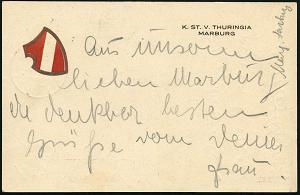 K. ST. V. THURINGIA
MARBURG
Aus unserm
lieben Marburg
die denkbar besten
Grüße von Deiner
Frau.